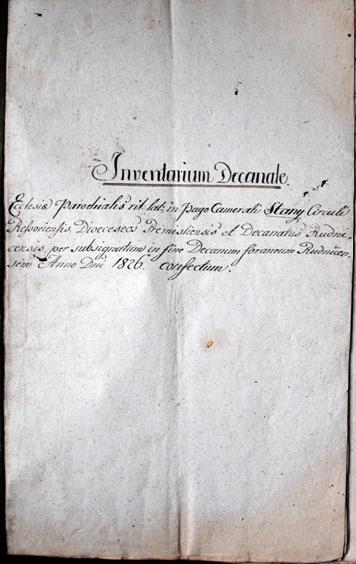 Inventarium Decanale.
Ecclesiæ Parochialis rit. lat. in Pago Camerali Stany Circuli
Resoviensis, Dioeceseos Premisliensis et Decanatus Rudni-
censis, per subsignatum in fine Decanum foraneum Rudnicen-
sem Anno Dni 1826. confectum.